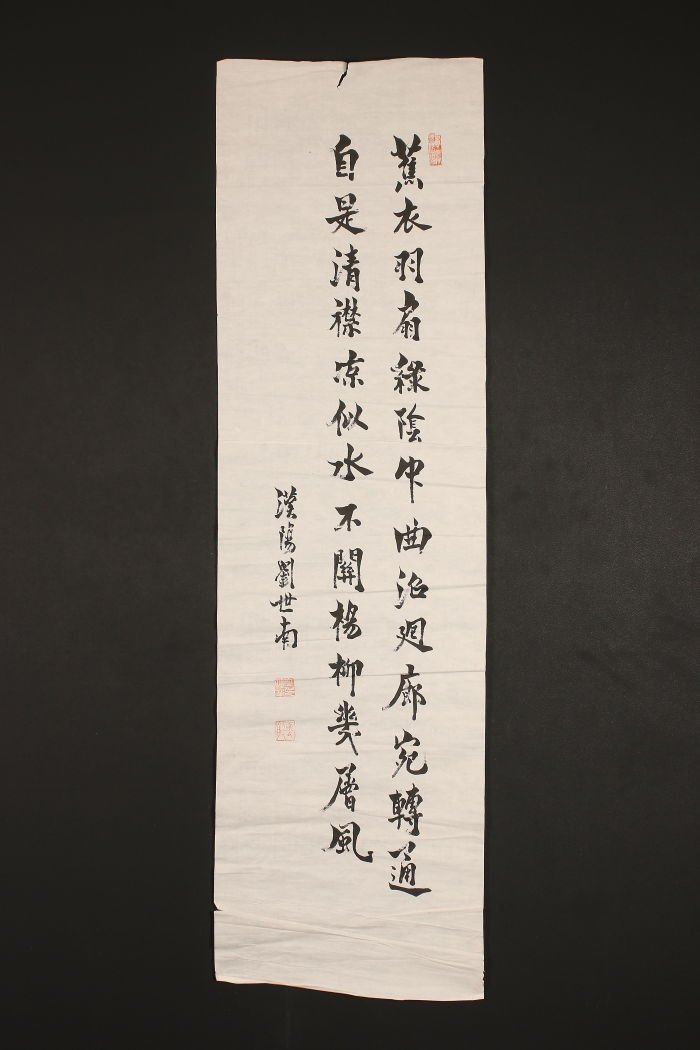 蕉衣羽扇綠陰中曲沼廻廊宛轉通
自是清襟涼似水不關楊柳幾層風
漢陽劉世南